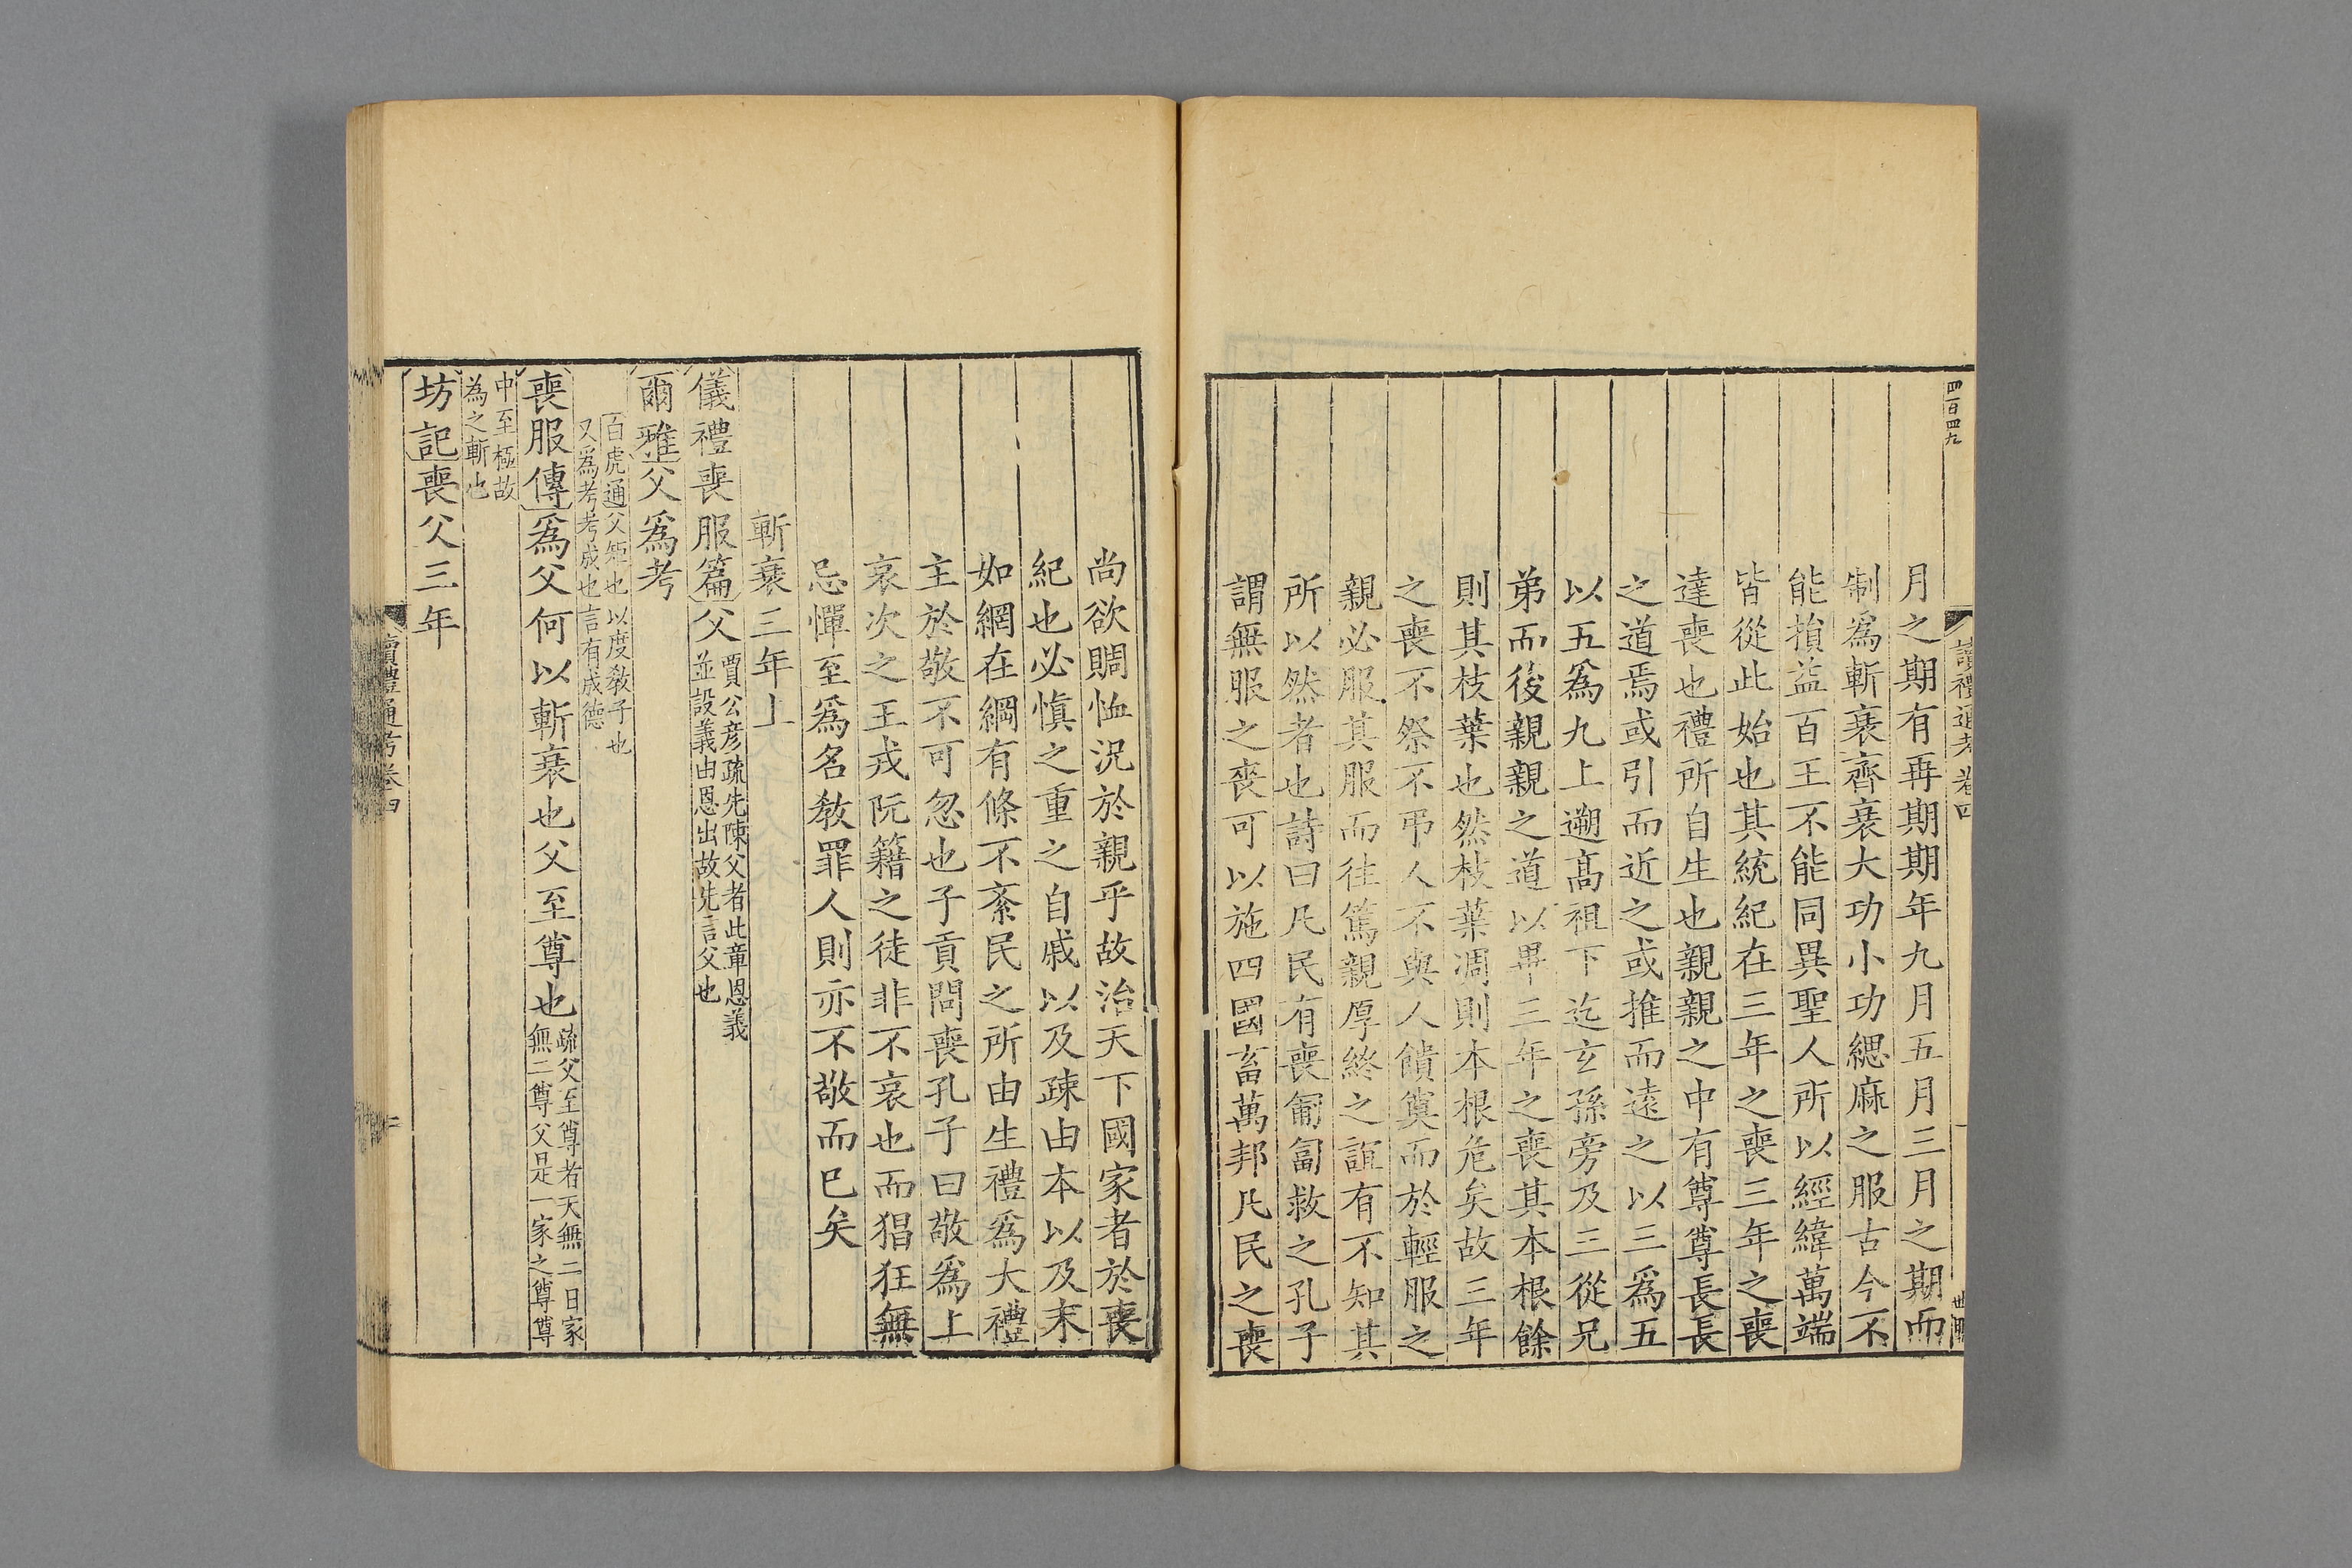 四百四九
讀禮通考卷四
月之期有再期期年九月五月三月之期而
制爲斬衰齊衰大功小功緦麻之服古今不
能損益百王不能同異聖人所以經緯萬端
皆從此始也其統紀在三年之喪三年之喪
達喪也禮所自生也親親之中有尊尊長長
之道焉或引而近之或推而遠之以三爲五
以五爲九上遡高祖下迄玄孫旁及三從兄
弟而後親親之道以畢三年之喪其本根餘
則其枝葉也然枝葉凋則本根危矣故三年
之喪不祭不弔人不與人饋奠而於輕服之
親必服其服而往篤親厚終之誼有不知其
所以然者也詩曰凡民有喪匍匐救之孔子
謂無服之喪可以施四國畜萬邦凡民之喪
尚欲賙恤況於親乎故治天下國家者於喪
紀也必愼之重之自戚以及疎由本以及末
如網在綱有條不紊民之所由生禮爲大禮
主於敬不可忽也子貢問喪孔子曰敬爲上
哀次之王戎阮籍之徒非不哀也而猖狂無
忌憚至爲名敎罪人則亦不敬而已矣
斬衰三年上
儀禮喪服篇父賈公彥疏先陳父者此章恩義
並設義由恩出故先言父也
爾雅父爲考
白虎通父矩也以度敎子也
又爲考考成也言有成德
喪服傳爲父何以斬衰也父至尊也疏父至尊者天無二日家
無二尊父是一家之尊尊
中至極故
為之斬也
坊記喪父三年
讀禮通考卷四
二